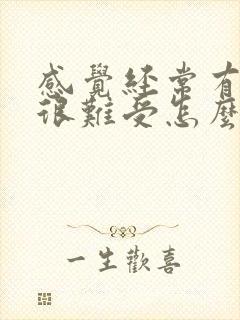 感覺經常有
很難受怎麼
一生歡喜